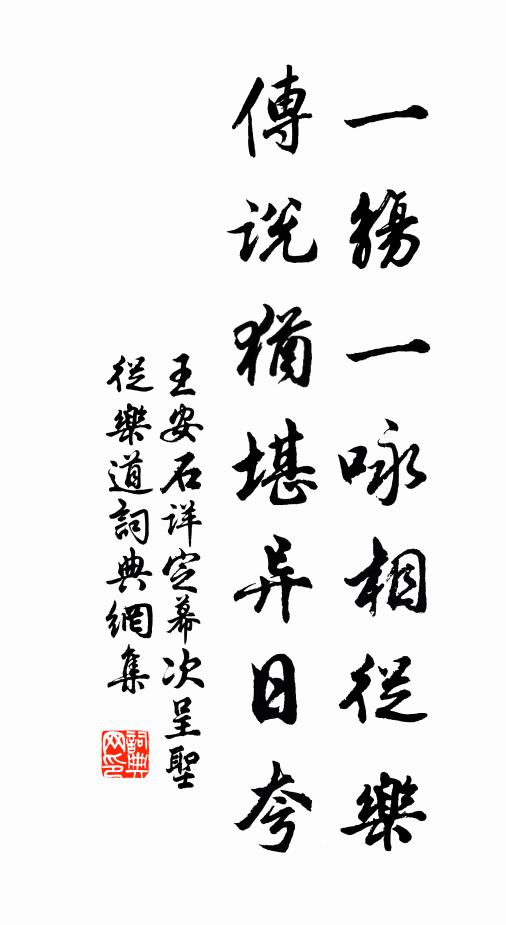 一觴一咏相從樂
傳說猶堪异日夸
王安石详定幕次呈聖
從樂道詞典網集
詞典
网印